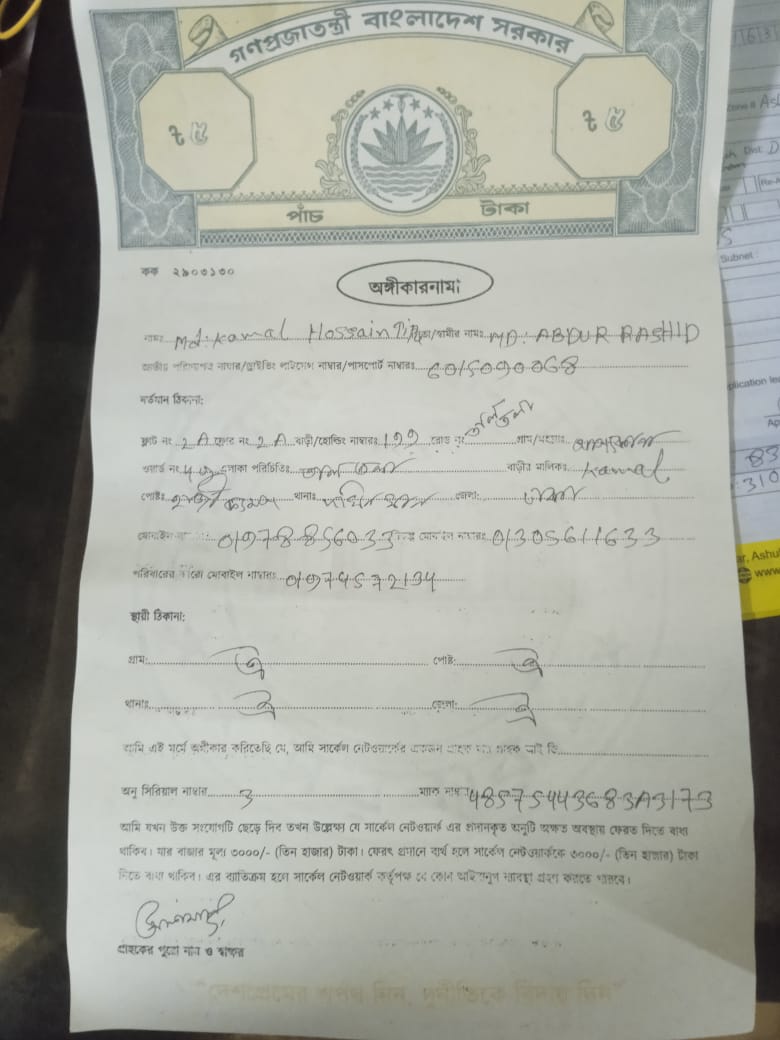 গণপ্রজাতন্ত্রী বাংলাদেশ সরকার
ট ৫
ট ৫
পাঁচ টাকা
কক ২৯০৩১৩০
অঙ্গীকারনামা
নামঃ Md: Kamal Hossain পিতা/স্বামীর নামঃ MD: ABDUR RASHID
জাতীয় পরিচয়পত্র নাম্বার/ড্রাইভিং লাইসেন্স নাম্বার/পাসপোর্ট নাম্বারঃ 6015090068
বর্তমান ঠিকানা:
ফ্লাট নং 2A ফ্লোর নং 2A বাড়ী/হোল্ডিং নাম্বারঃ 177 রোড নং গ্রাম/মহল্লাঃ
ওয়ার্ড নং 47 এলাকা পরিচিতিঃ বাড়ীর মালিকঃ Kamal
পোষ্টঃ থানাঃ দক্ষিণ খান জেলা: ঢাকা
মোবাইল নাম্বারঃ 01978856033 বিকল্প মোবাইল নাম্বারঃ 01305611633
পরিবারের কারো মোবাইল নাম্বারঃ 01974572134
স্থায়ী ঠিকানা:
গ্রাম: ঐ পোষ্ট: ঐ
থানাঃ ঐ জেলা: ঐ
আমি এই মর্মে অঙ্গীকার করিতেছি যে, আমি সার্কেল নেটওয়ার্কের একজন গ্রাহক যার গ্রাহক আই ডি
অনু সিরিয়াল নাম্বার 3 ম্যাক নাম্বার 48575443683A3173
আমি যখন উক্ত সংযোগটি ছেড়ে দিব তখন উল্লেক্ষ্য যে সার্কেল নেটওয়ার্ক এর প্রদানকৃত অনুটি অক্ষত অবস্থায় ফেরত দিতে বাধ্য
থাকিব। যার বাজার মূল্য ৩০০০/- (তিন হাজার) টাকা। ফেরৎ প্রদানে ব্যর্থ হলে সার্কেল নেটওয়ার্ককে ৩০০০/- (তিন হাজার) টাকা
দিতে বাধ্য থাকিব। এর ব্যতিক্রম হলে সার্কেল নেটওয়ার্ক কর্তৃপক্ষ যে কোন আইনানুগ ব্যবস্থা গ্রহণ করতে পারবে।
গ্রাহকের পুরো নাম ও স্বাক্ষর
"দেশপ্রেমের শপথ নিন, দুর্নীতিকে বিদায় দিন"
Subnet :
83
310
www.